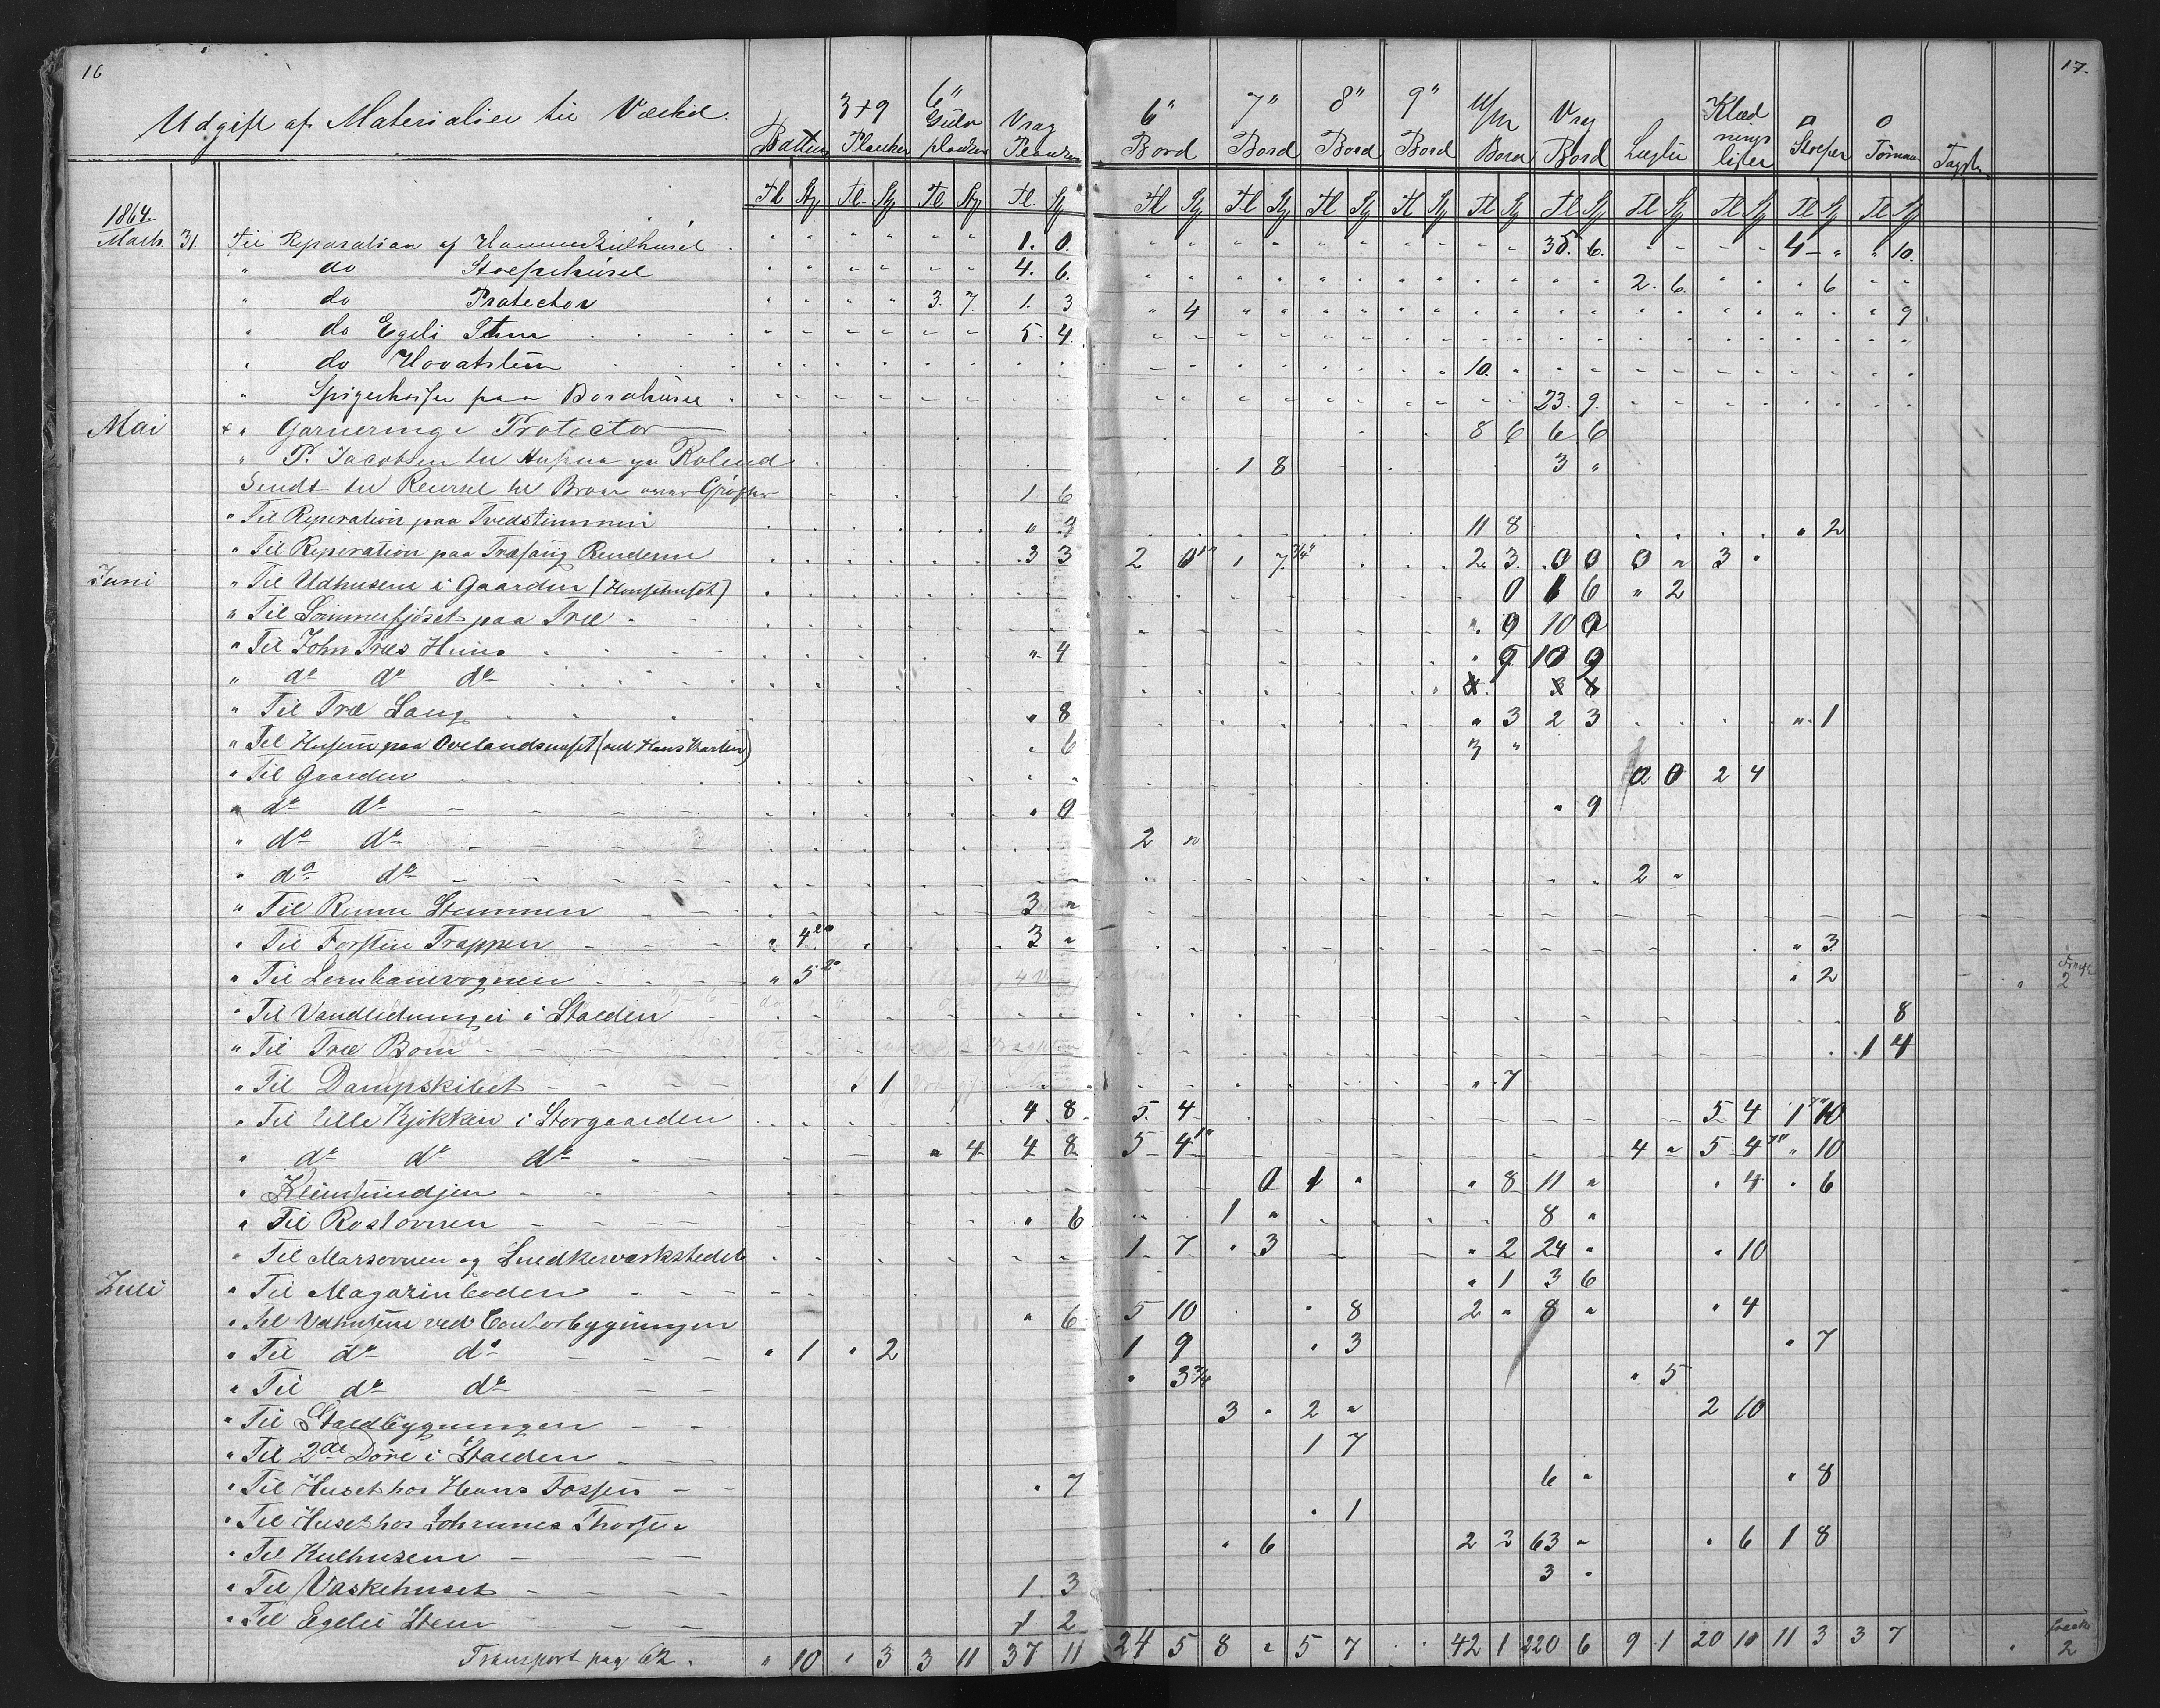 16
17.
Udgift af Materialier til Værket.
Battens
3+9 Planker
6" Gulv planker
Vrag Planker
6" Bord
7" Bord
8" Bord
9" Bord
U/M Bord
Vrag Bord
Lægter
Klæd nings lister
□ Stolper
o Tømmer
Tl Sty Tl. Sty Tl Sty Tl. Sty Tl Sty Tl Sty Tl Sty Tl Sty Tl Sty Tl Sty Tl Sty Tl Sty Tl Sty Tl Sty
1864.
Marts. 31. Til Reparation af Hammerkulhuset 1. 0. 35. 6. 4 " " 10.
" do Stolpehuset 4. 6. 2. 6. " 6
" do Protector 3. 7. 1. 3 " 4 " 9
" do Egeli Stem 5. 4.
" do Hovatslun 10. "
" Spigerhaser paa Bordhuset 23. 9.
Mai + " Garnering Protector 8 6 6 6
" P. Jacobsen til Husene pa Rolend 1 8 3 "
Sendt til Reirsel til Broer over Grøfter 1 6
" Til Reperation paa Tredstemmen " 9 11 8 " 2
" Til Reperation paa Træfang Renderne 3 3 2 0 1" 1 7 3/4" 2. 3. 0 0 0 " 3 "
Juni " Til Udhusene i Gaarden (Hønsehuset) 0 1 6 " 2
" Til Sommerfjøset paa Træ " 9 10 9
" Til John Træs Huus " 4 " 9 10 9
" do do do 4 3 8
" Til Træ Laug " 8 " 3 2 3 " 1
" Til Husene paa Ovelandsneset (ved Hans Martin) " 6 3 "
" Til Gaarden 0 0 2 4
" do do " 0 " 9
" do do 2 "
" do do 2 "
" Til Renne Stemmen 3 "
" Til Forsten Trappen " 4 3 " " 3
" Til Jernbanevognen " 5 " 2 2
" Til Vandledninger i Stalden 8
" Til Træ Bom 1 4
" Til Dampskibet " 1 " 7
" Til lille Kjøkken i Storgaarden 4 8 5. 4 5 4 1 10
" do do do " 4 4 8 5 4 1" 4 " 5 4 " 10
" Kleinsmidjen 0 1 " " 8 11 " " 4 " 6
" Til Rostovnen " 6 1 " 8 "
" Til Marsovnen og Snedkerværkstedet 1 7 " 3 " 2 24 " " 10
Juli " Til Magazinboden " 1 3 6
" Til Udhusene ved Contorbygningen " 6 5 10 " 8 2 " 8 " " 4
" Til do do " 1 " 2 1 9 " 3 " 7
" Til do do " 3 3/4 " 5
" Til Staldbygningen 3 " 2 " 2 10
" Til 2de Døre i Stalden 1 7
" Til Huset hos Hans Fossen " 7 6 " " 8
" Til Huset hos Johannes Thorsen " 1
" Til Kulhusene " 6 2 2 63 " " 6 1 8
" Til Vaskehuset 1 3 3 "
" Til Egeli Stem 1 2
Transport pag 62. " 10 " 3 3 11 37 11 24 5 8 " 5 7 " " 42 1 220 6 9 1 20 10 11 3 3 7 2